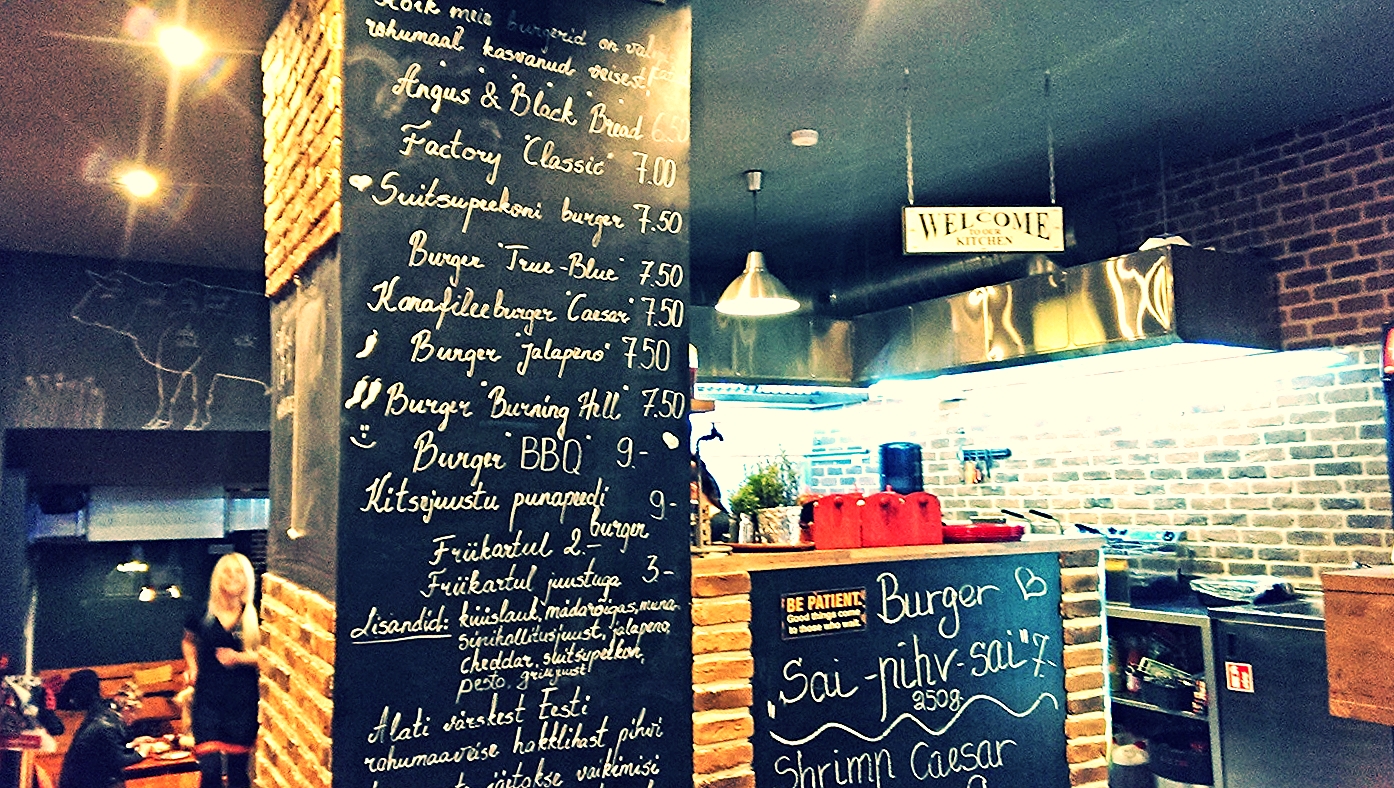 Kõik meie burgerid on
rohumaal kasvanud veisest!
Angus & Black Bread 6.50
Factory "Classic" 7.00
Suitsupeekoni burger 7.50
Burger "True-Blue" 7.50
Kanafilee burger "Caesar" 7.50
Burger "Jalapeno" 7.50
Burger "Burning Hell" 7.50
Burger "BBQ" 9.-
Kitsejuustu punapeedi 9.-
burger
Friikartul 2.-
Friikartul juustuga 3.-
Lisandid: küüslauk, mädarõigas, muna,
sinihallitusjuust, jalapeno,
cheddar, suitsupeekon,
pesto, grilljuust
Alati värskest Eesti
rohumaaveise hakklihast pihvi
vaikimisi
WELCOME
TO OUR
KITCHEN
BE PATIENT.
Good things come
to those who wait.
Burger
"Sai-pihv-sai" 7.-
250g
Shrimp Caesar